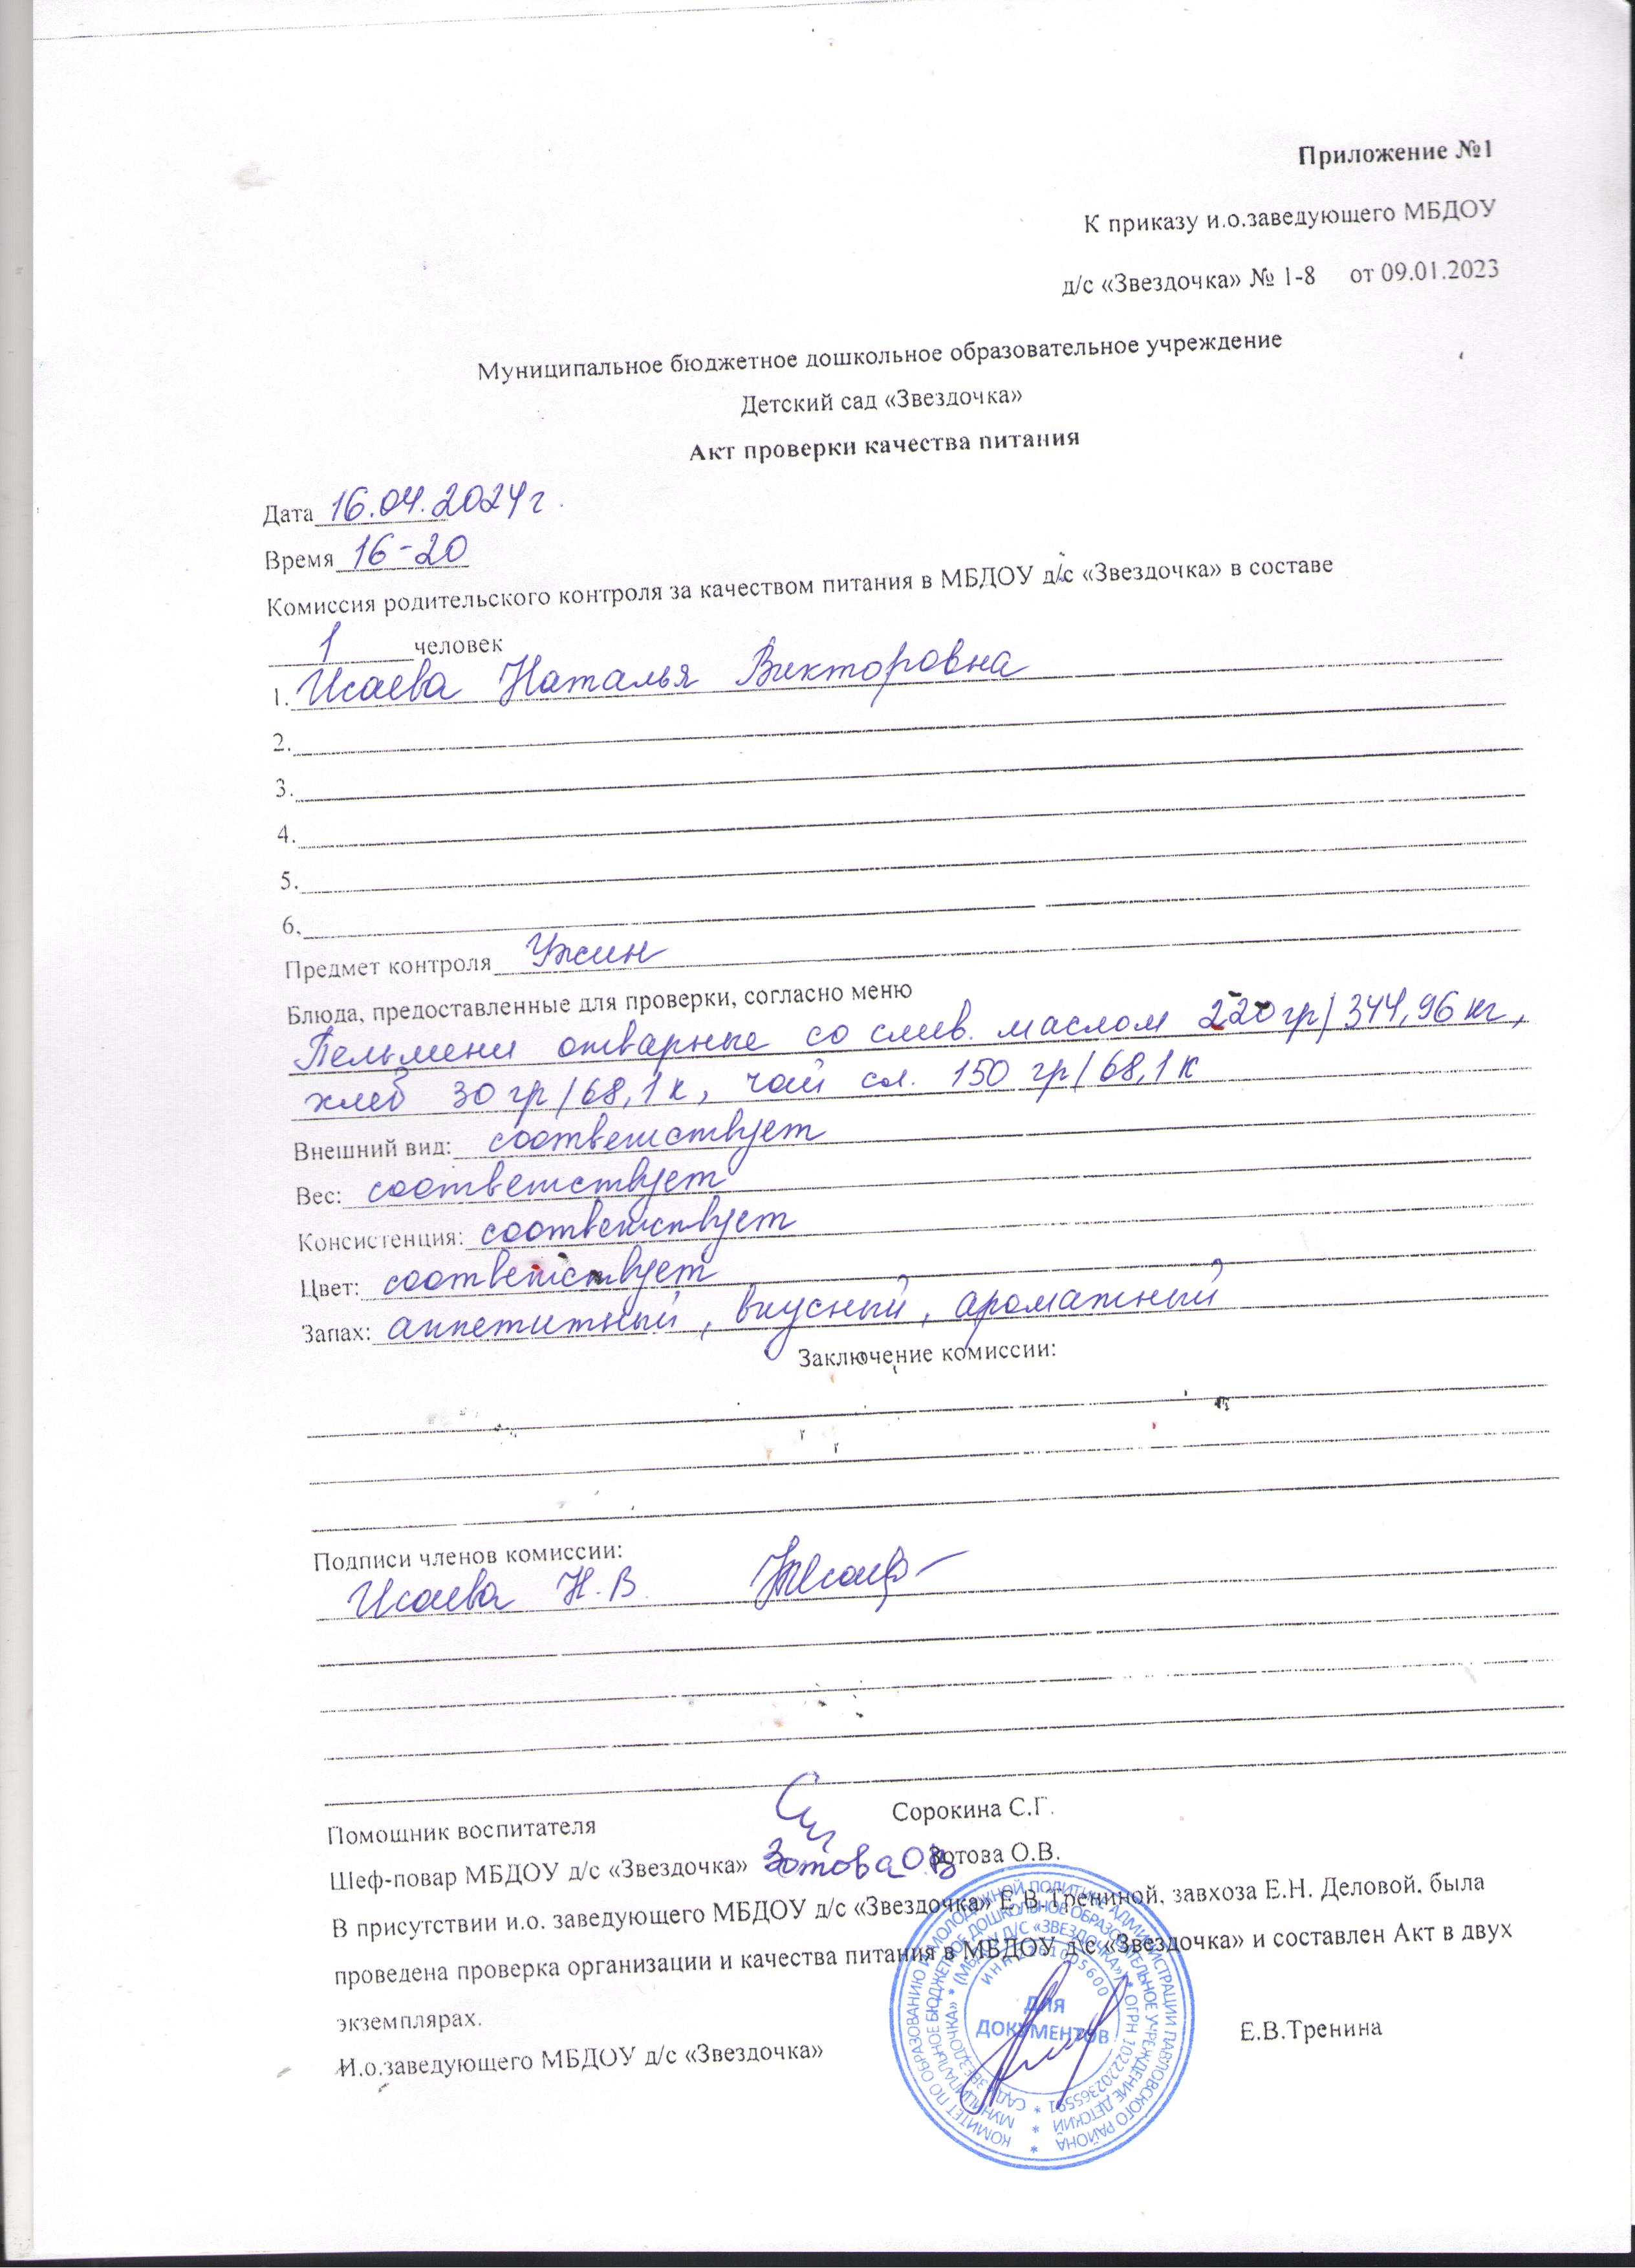 Приложение №1
К приказу и.о.заведующего МБДОУ
д/с «Звездочка» № 1-8 от 09.01.2023
Муниципальное бюджетное дошкольное образовательное учреждение
Детский сад «Звездочка»
Акт проверки качества питания
Дата 16.04.2024г.
Время 16-20
Комиссия родительского контроля за качеством питания в МБДОУ д/с «Звездочка» в составе
1 человек
1. Исаева Наталья Викторовна
2.
3.
4.
5.
6.
Предмет контроля Ужин
Блюда, предоставленные для проверки, согласно меню
Пельмени отварные со слив. маслом 220гр/344,96кг,
хлеб 30гр/68,1к, чай сл. 150 гр/68,1к
Внешний вид: соответствует
Вес: соответствует
Консистенция: соответствует
Цвет: соответствует
Запах: аппетитный, вкусный, ароматный
Заключение комиссии:
Подписи членов комиссии:
Исаева Н.В.
Помощник воспитателя Сорокина С.Г.
Шеф-повар МБДОУ д/с «Звездочка» Зотова О.В. Зотова О.В.
В присутствии и.о. заведующего МБДОУ д/с «Звездочка» Е.В.Трениной, завхоза Е.Н. Деловой, была
проведена проверка организации и качества питания в МБДОУ д/с «Звездочка» и составлен Акт в двух
экземплярах.
И.о.заведующего МБДОУ д/с «Звездочка» Е.В.Тренина
КОМИТЕТ ПО ОБРАЗОВАНИЮ И МОЛОДЕЖНОЙ ПОЛИТИКЕ АДМИНИСТРАЦИИ ПАВЛОВСКОГО РАЙОНА
МУНИЦИПАЛЬНОЕ БЮДЖЕТНОЕ ДОШКОЛЬНОЕ ОБРАЗОВАТЕЛЬНОЕ УЧРЕЖДЕНИЕ ДЕТСКИЙ
САД «ЗВЕЗДОЧКА» * (МБДОУ Д/С «ЗВЕЗДОЧКА») * ОГРН 1022202365591 *
ДЛЯ
ДОКУМЕНТОВ